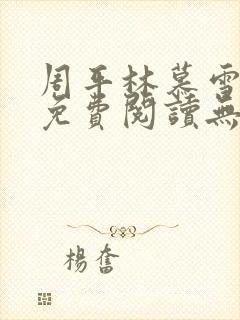 周平林慕雪
免費閱讀無
楊奮